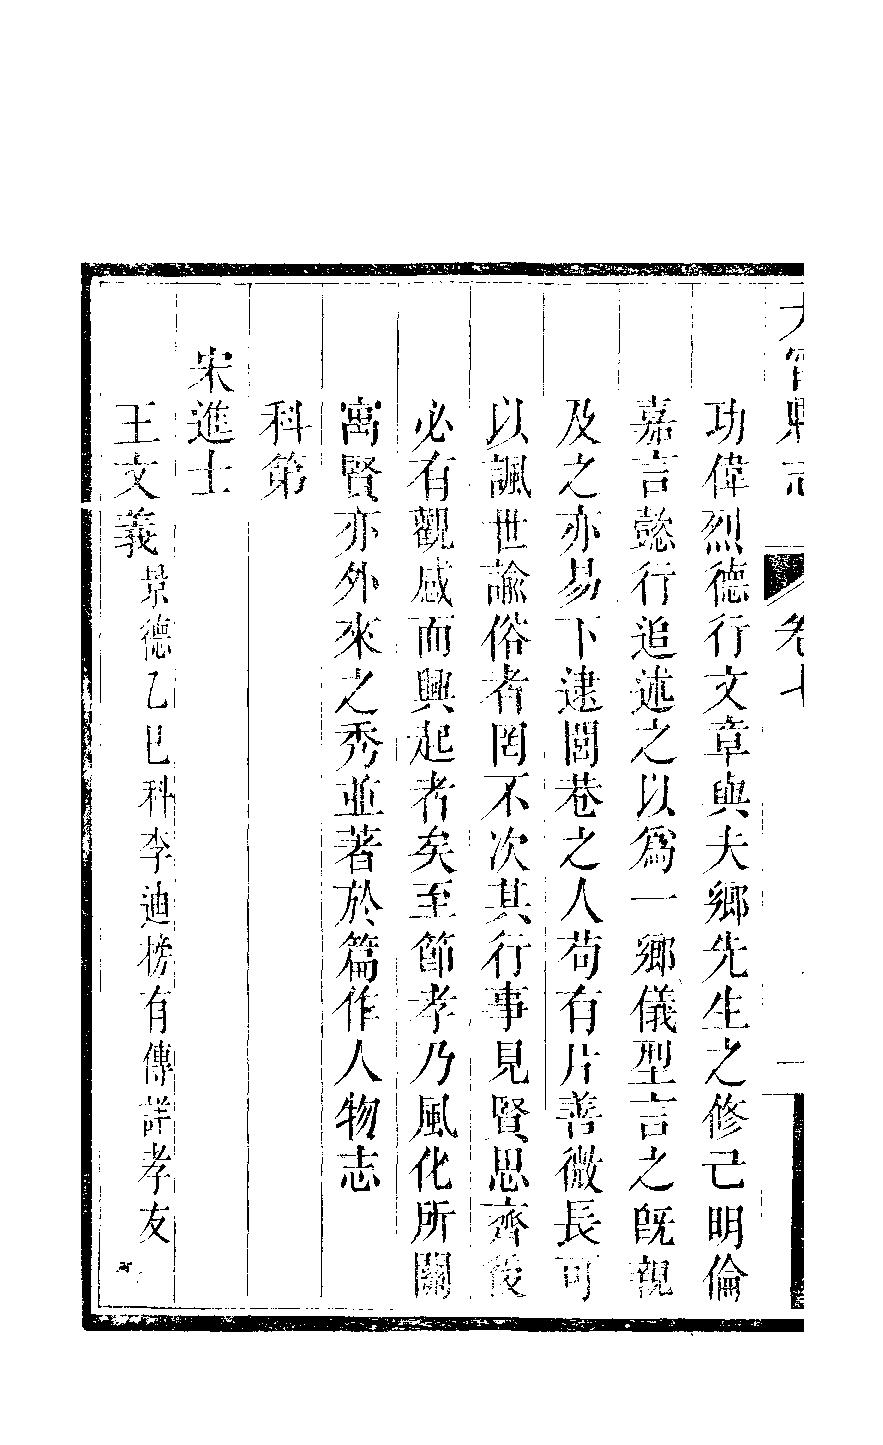 功偉烈德行文章與夫鄉先生之修己明倫
嘉言懿行追述之以爲一鄉儀型言之旣親
及之亦易下逮閭巷之人苟有片善微長可
以諷世諭俗者罔不次其行事見賢思齊後
必有觀感而興起者矣至節孝乃風化所關
寓賢亦外來之秀並著於篇作人物志
科第
宋進士
王文義景德乙巳科李迪榜有傳詳孝友